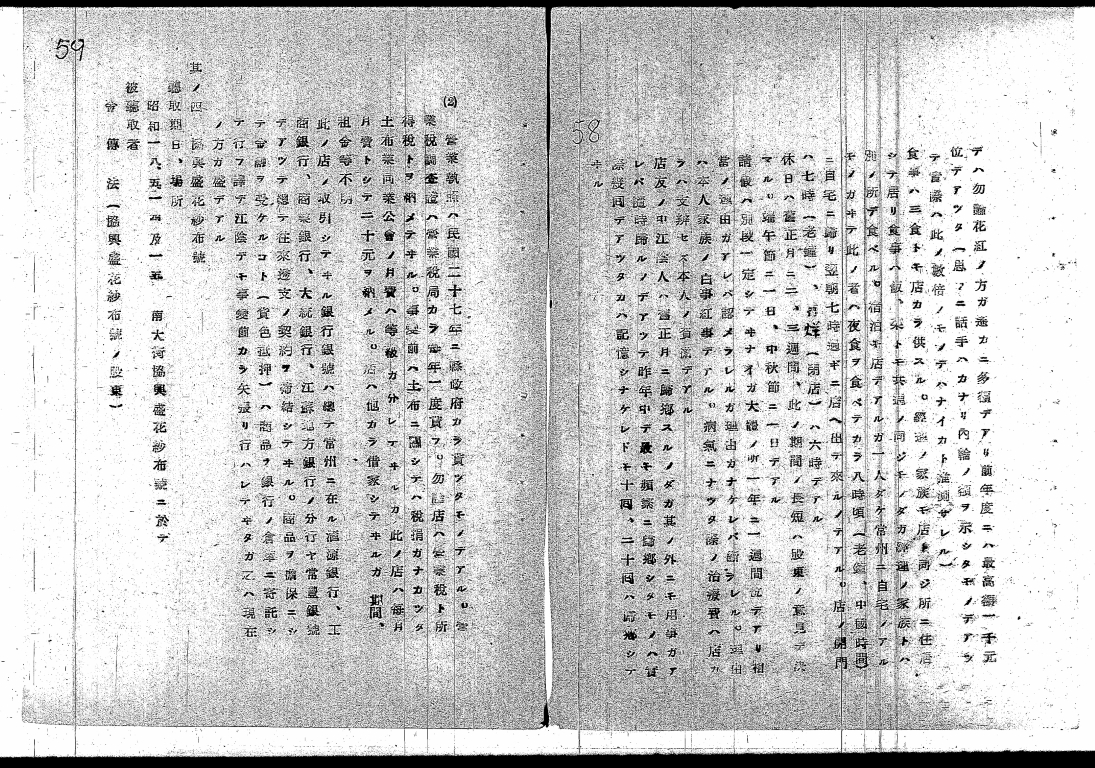 58
デハ勿論花紅ノ方遙カニ多額デアリ前年度ニハ最高額一千元
位デアツタ(思フニ話手ハカナリ內輪ノ額ヲ示シタモノデアラ
ウ實際ハ此ノ數倍ノモノデハナイカト推測サレル)
食事ハ三食トモ店カラ供スル。經理ノ家族モ店ト同ジ所ニ住居
シテ居リ食事ハ飯、菜トモ共通ノ同ジモノダガ經理ノ家族トハ
別ノ所デ食ベル。宿泊モ店デアルガ一人ダケ常州ニ自宅ノアル
モノガヰテ此ノ者ハ夜食ヲ食ベテカラ八時頃(老鐘、中國時間)
ニ自宅ニ歸リ翌朝七時過ギニ店ヘ出テ來ルノデアル。店ノ開門
ハ七時(老鐘)、打烊(閉店)ハ六時デアル
休日ハ舊正月ニ二、三週間、此ノ期間ノ長短ハ股東ノ意見デ決
マル。端午節ニ一日、中秋節ニ一日デアル
請假ハ別段一定シテヰナイガ大體ノ所一年ニ一週間位デアリ相
當ノ理由ガアレバ認メラレルガ理由ガナケレバ斷ラレル。理由
ハ本人家族ノ白事紅事デアル。病氣ニナツタ際ノ治療費ハ店カ
ラハ支辨セズ本人ノ負擔デアル
店友ノ中江陰人ハ舊正月ニ歸鄉スルノダガ其ノ外ニモ用事ガア
レバ隨時歸ルノデアツテ昨年中デ最モ頻繁ニ歸鄉シタモノハ實
際幾囘デアツタカハ記憶シナケレドモ十囘、二十囘ハ歸鄉シテ
ヰル
59
(2) 營業執照ハ民國二十七年ニ縣政府カラ貰ツタモノデアル。營
業稅調査證ハ營業稅局カラ每年一度貰フ。勿論店ハ營業稅ト所
得稅トヲ納メテヰル。事變前ハ土布ニ關シテハ稅捐ガナカツタ
土布業同業公會ノ月費ハ等級ガ分レテヰルガ此ノ店ハ每月
月費トシテ二十元ヲ納メル。店ハ他カラ借家シテヰルガ期間、
租金等不明
此ノ店ノ取引シテヰル銀行銀號ハ總テ常州ニ在ル滙源銀行、工
商銀行、商業銀行、大統銀行、江蘇地方銀行ノ分行ヤ常豐銀號
デアツテ總テ往來透支ノ契約ヲ締結シテヰル。商品ヲ擔保ニシ
テ金融ヲ受ケルコト(貨色抵押)ハ商品ヲ銀行ノ倉庫ニ寄託シ
テ行フ譯デ江陰デモ事變前カラ矢張リ行ハレテヰタガ之ハ現在
ノ方ガ盛デアル
其ノ四 協興盛花紗布號
聽取期日、場所
昭和一八、五、一四及一五 南大河協興盛花紗布號ニ於テ
被聽取者
法(協興盛花紗布號ノ股東)